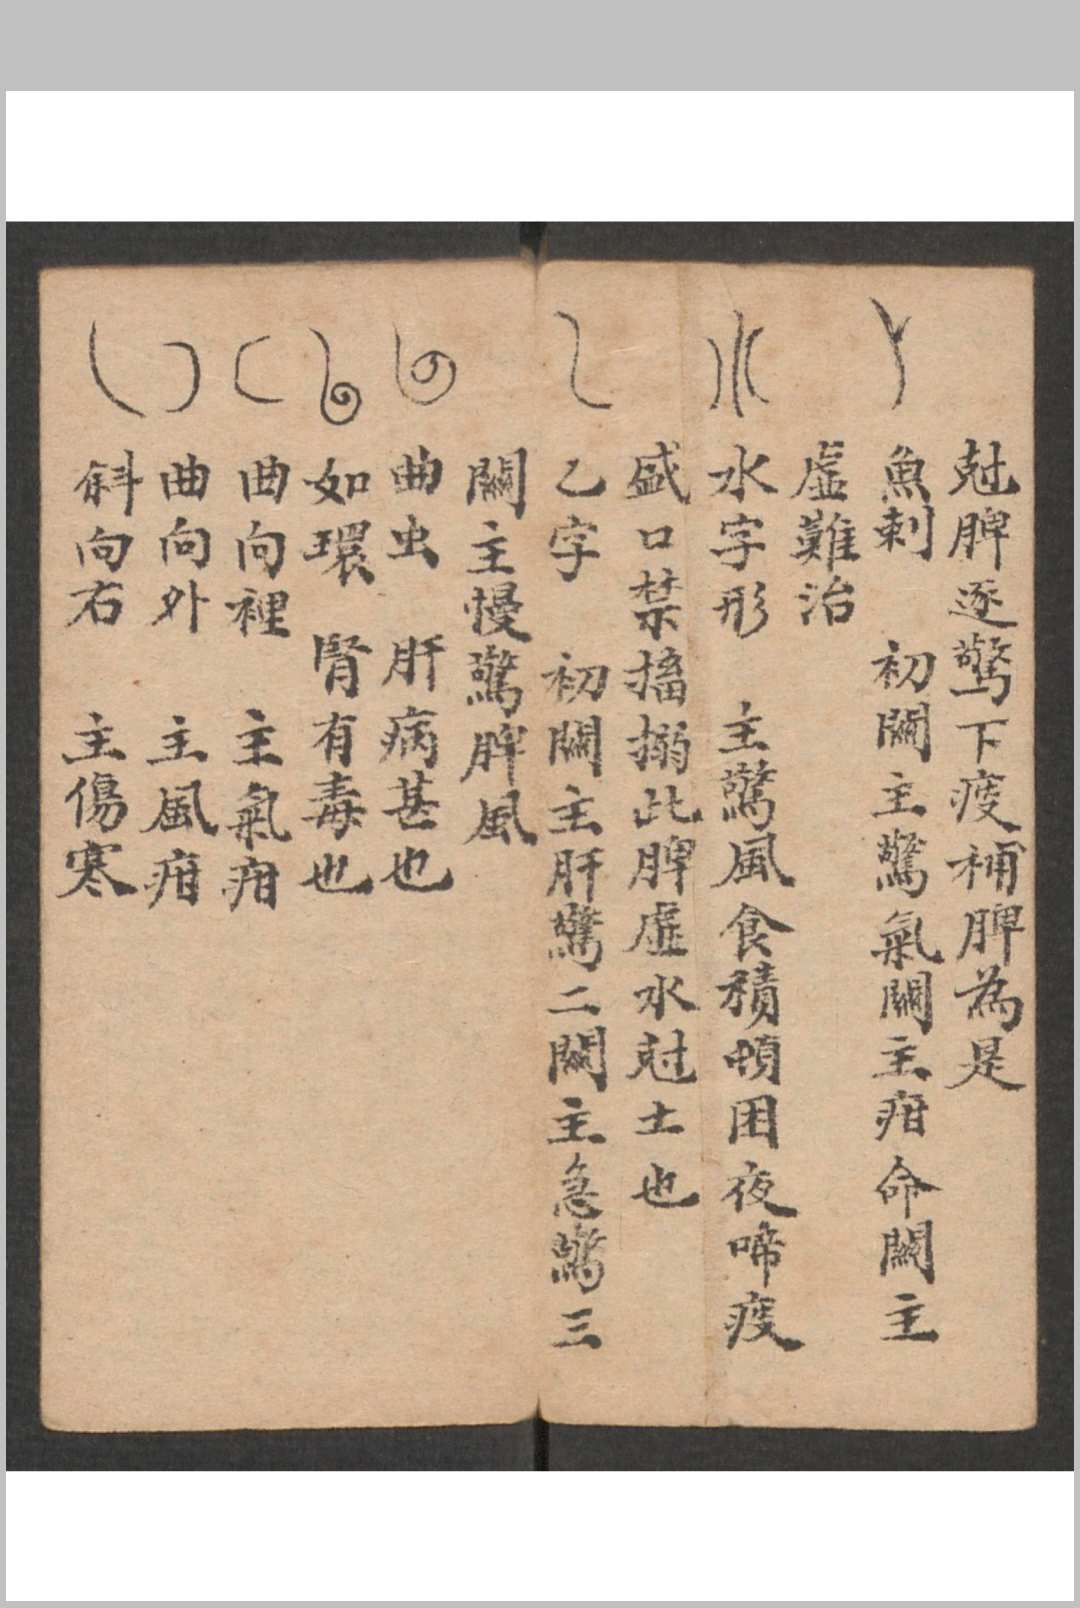 尅脾逐驚下痰補脾為是
魚刺 初關主驚氣關主疳命關主
虛難治
水字形 主驚風食積煩困夜啼痰
盛口禁搐搦此脾虛水尅土也
乙字 初關主肝驚二關主急驚三
關主慢驚脾風
曲虫 肝病甚也
如環 腎有毒也
曲向裡 主氣疳
曲向外 主風疳
斜向右 主傷寒